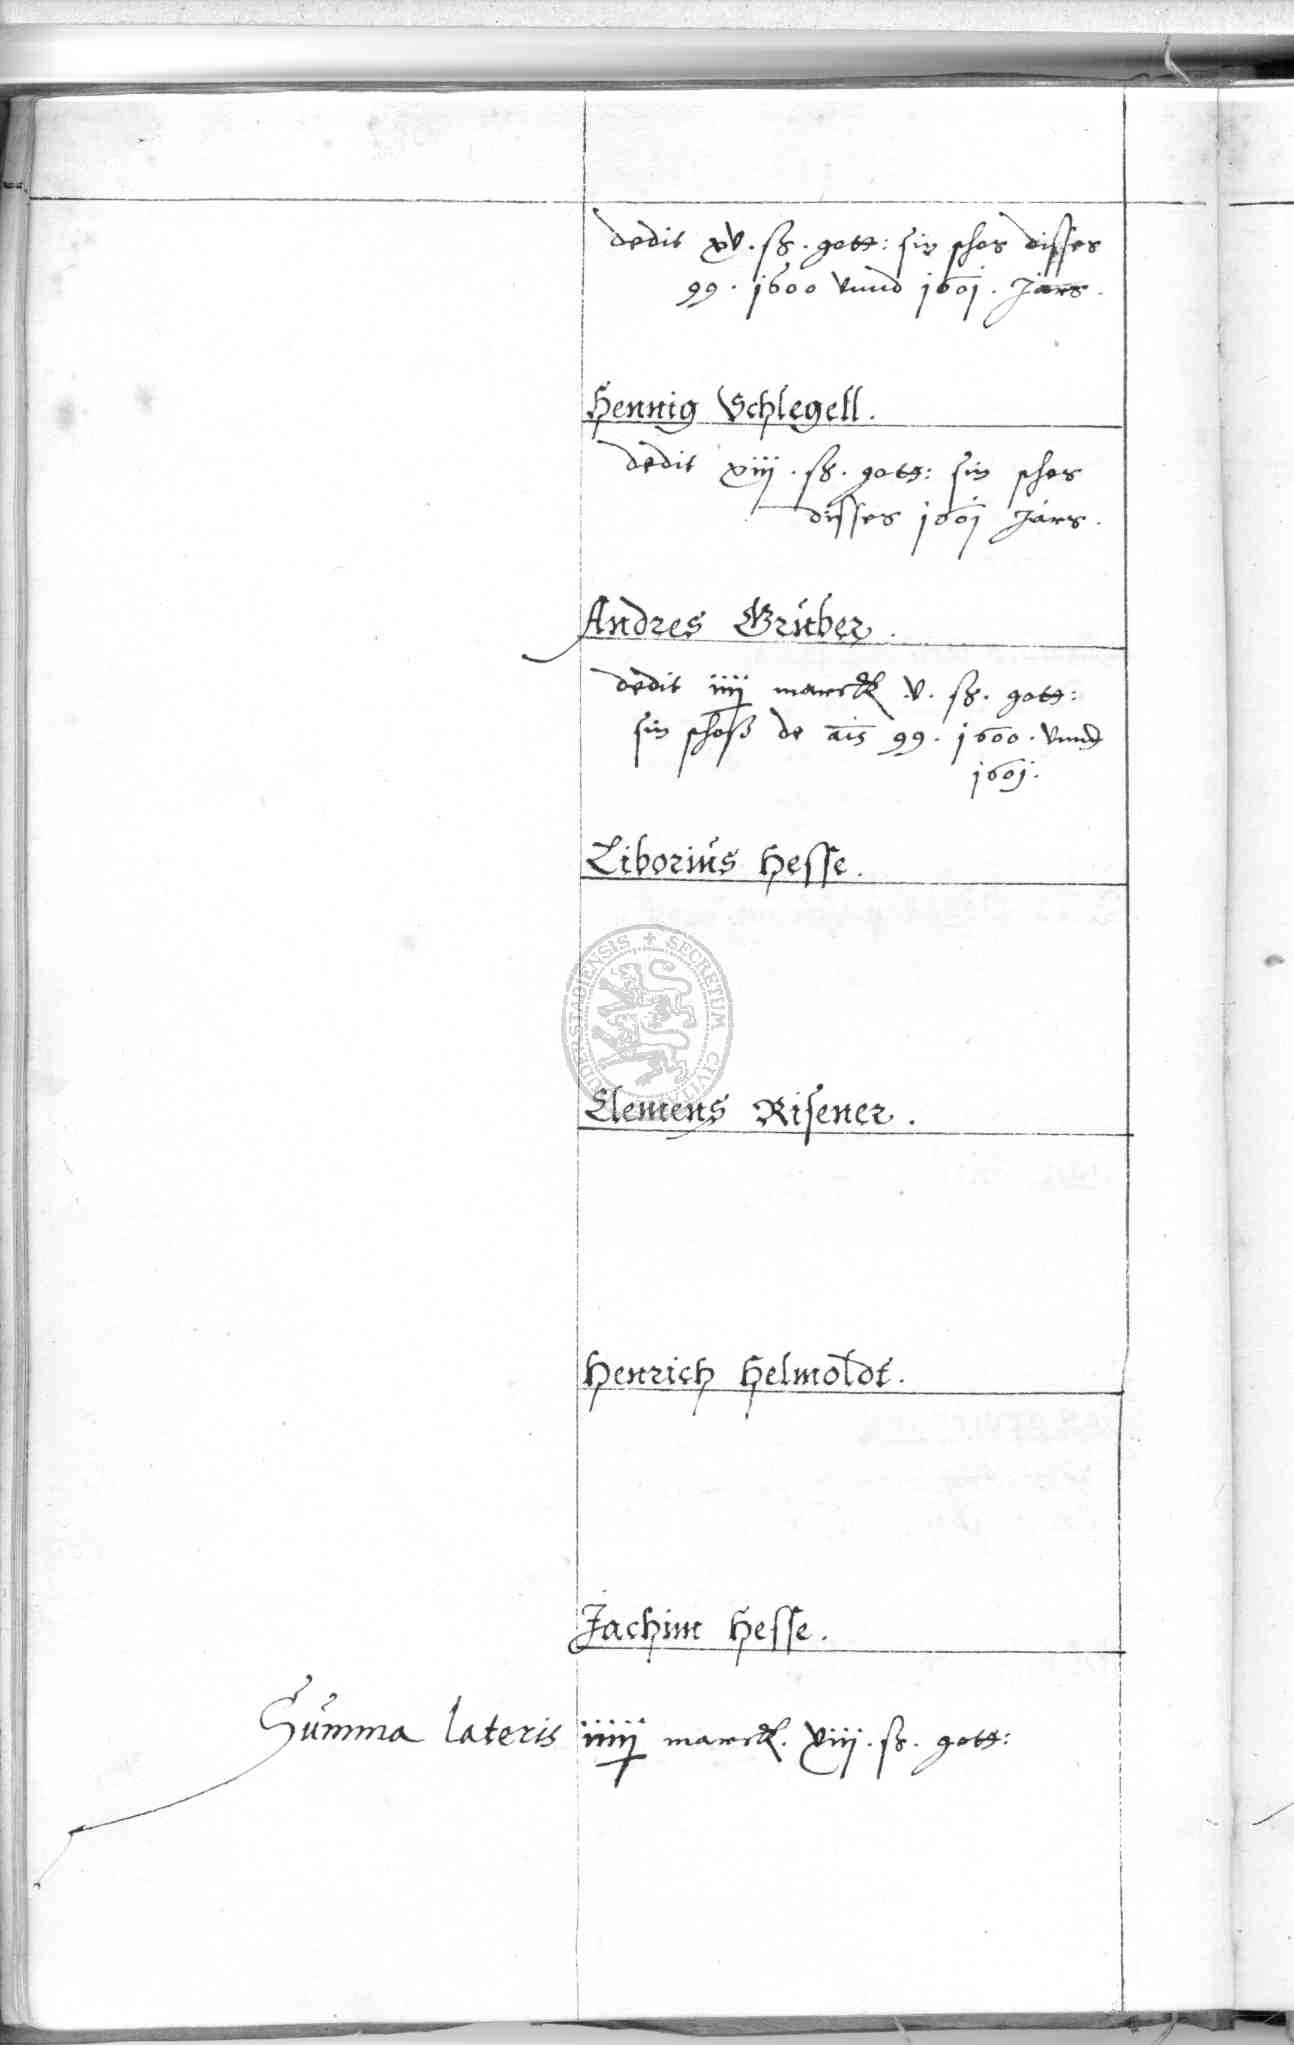 dedit xv. ß. gott: sin schos disses
99. 1600 vnnd 1601. Jars.
Hennig Schlegell.
dedit xiij. ß. gott: sin schos
disses 1601 Jars.
Andres Grüber.
dedit iiij marck v. ß. gott:
sin schoß de ais 99. 1600. vnnd
1601.
Liboriüs Hesse.
SECRETUM
Clemens Risener.
Henrich Helmoldt.
Jachim Hesse.
Sümma lateris marck. xiij. ß. gott: